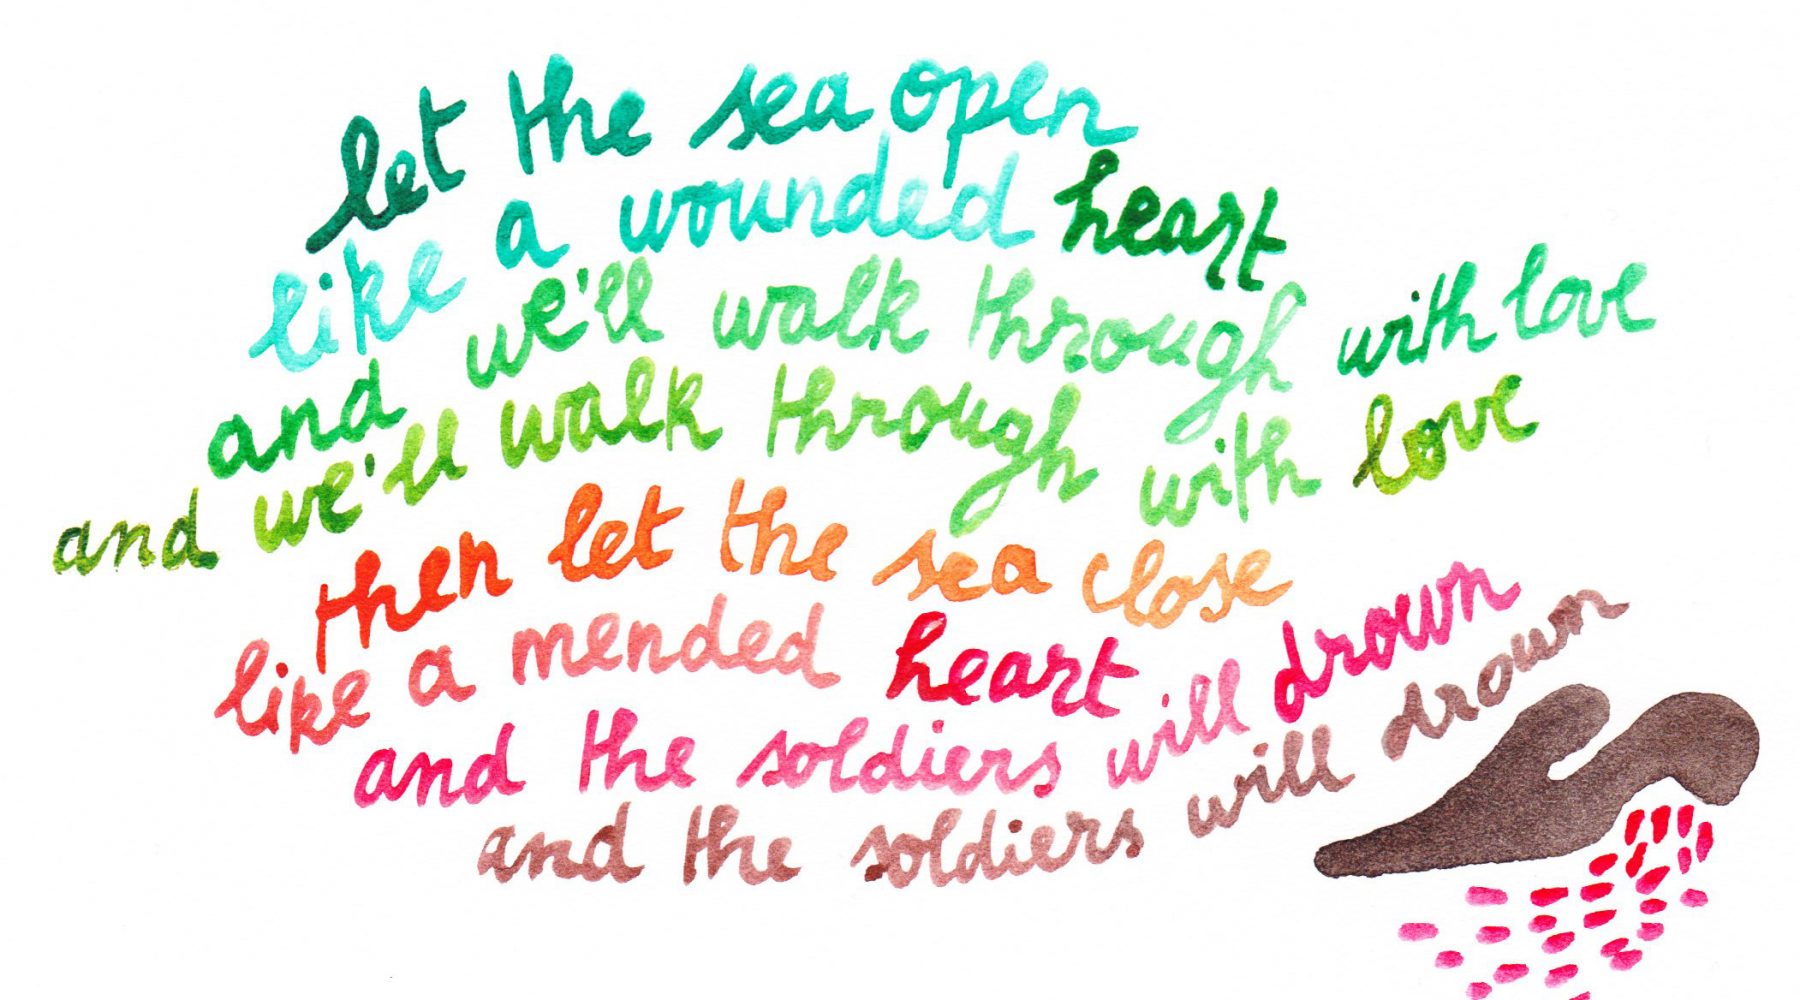 let the sea open
like a wounded heart
and we'll walk through with love
and we'll walk through with love
then let the sea close
like a mended heart
and the soldiers will drown
and the soldiers will drown